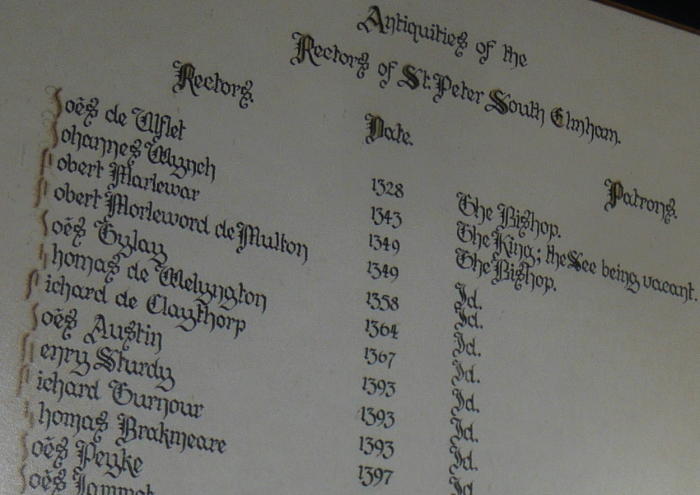 Antiquities of the
Rectors of St. Peter South Elmham.
Rectors. Date. Patrons.
Joẽs de Uflet 1328 The Bishop.
Johannes Wynch 1343 The King; the See being vacant.
Robert Marlewar 1349 The Bishop.
Robert Morleword de Multon 1349 Id.
Joẽs Gylay 1358 Id.
Thomas de Welyngton 1364 Id.
Richard de Claythorp 1367 Id.
Joẽs Austin 1393 Id.
Henry Sturdy 1393 Id.
Richard Gurnour 1393 Id.
Thomas Brakmeare 1397 Id.
Joẽs Peyke
Joẽs